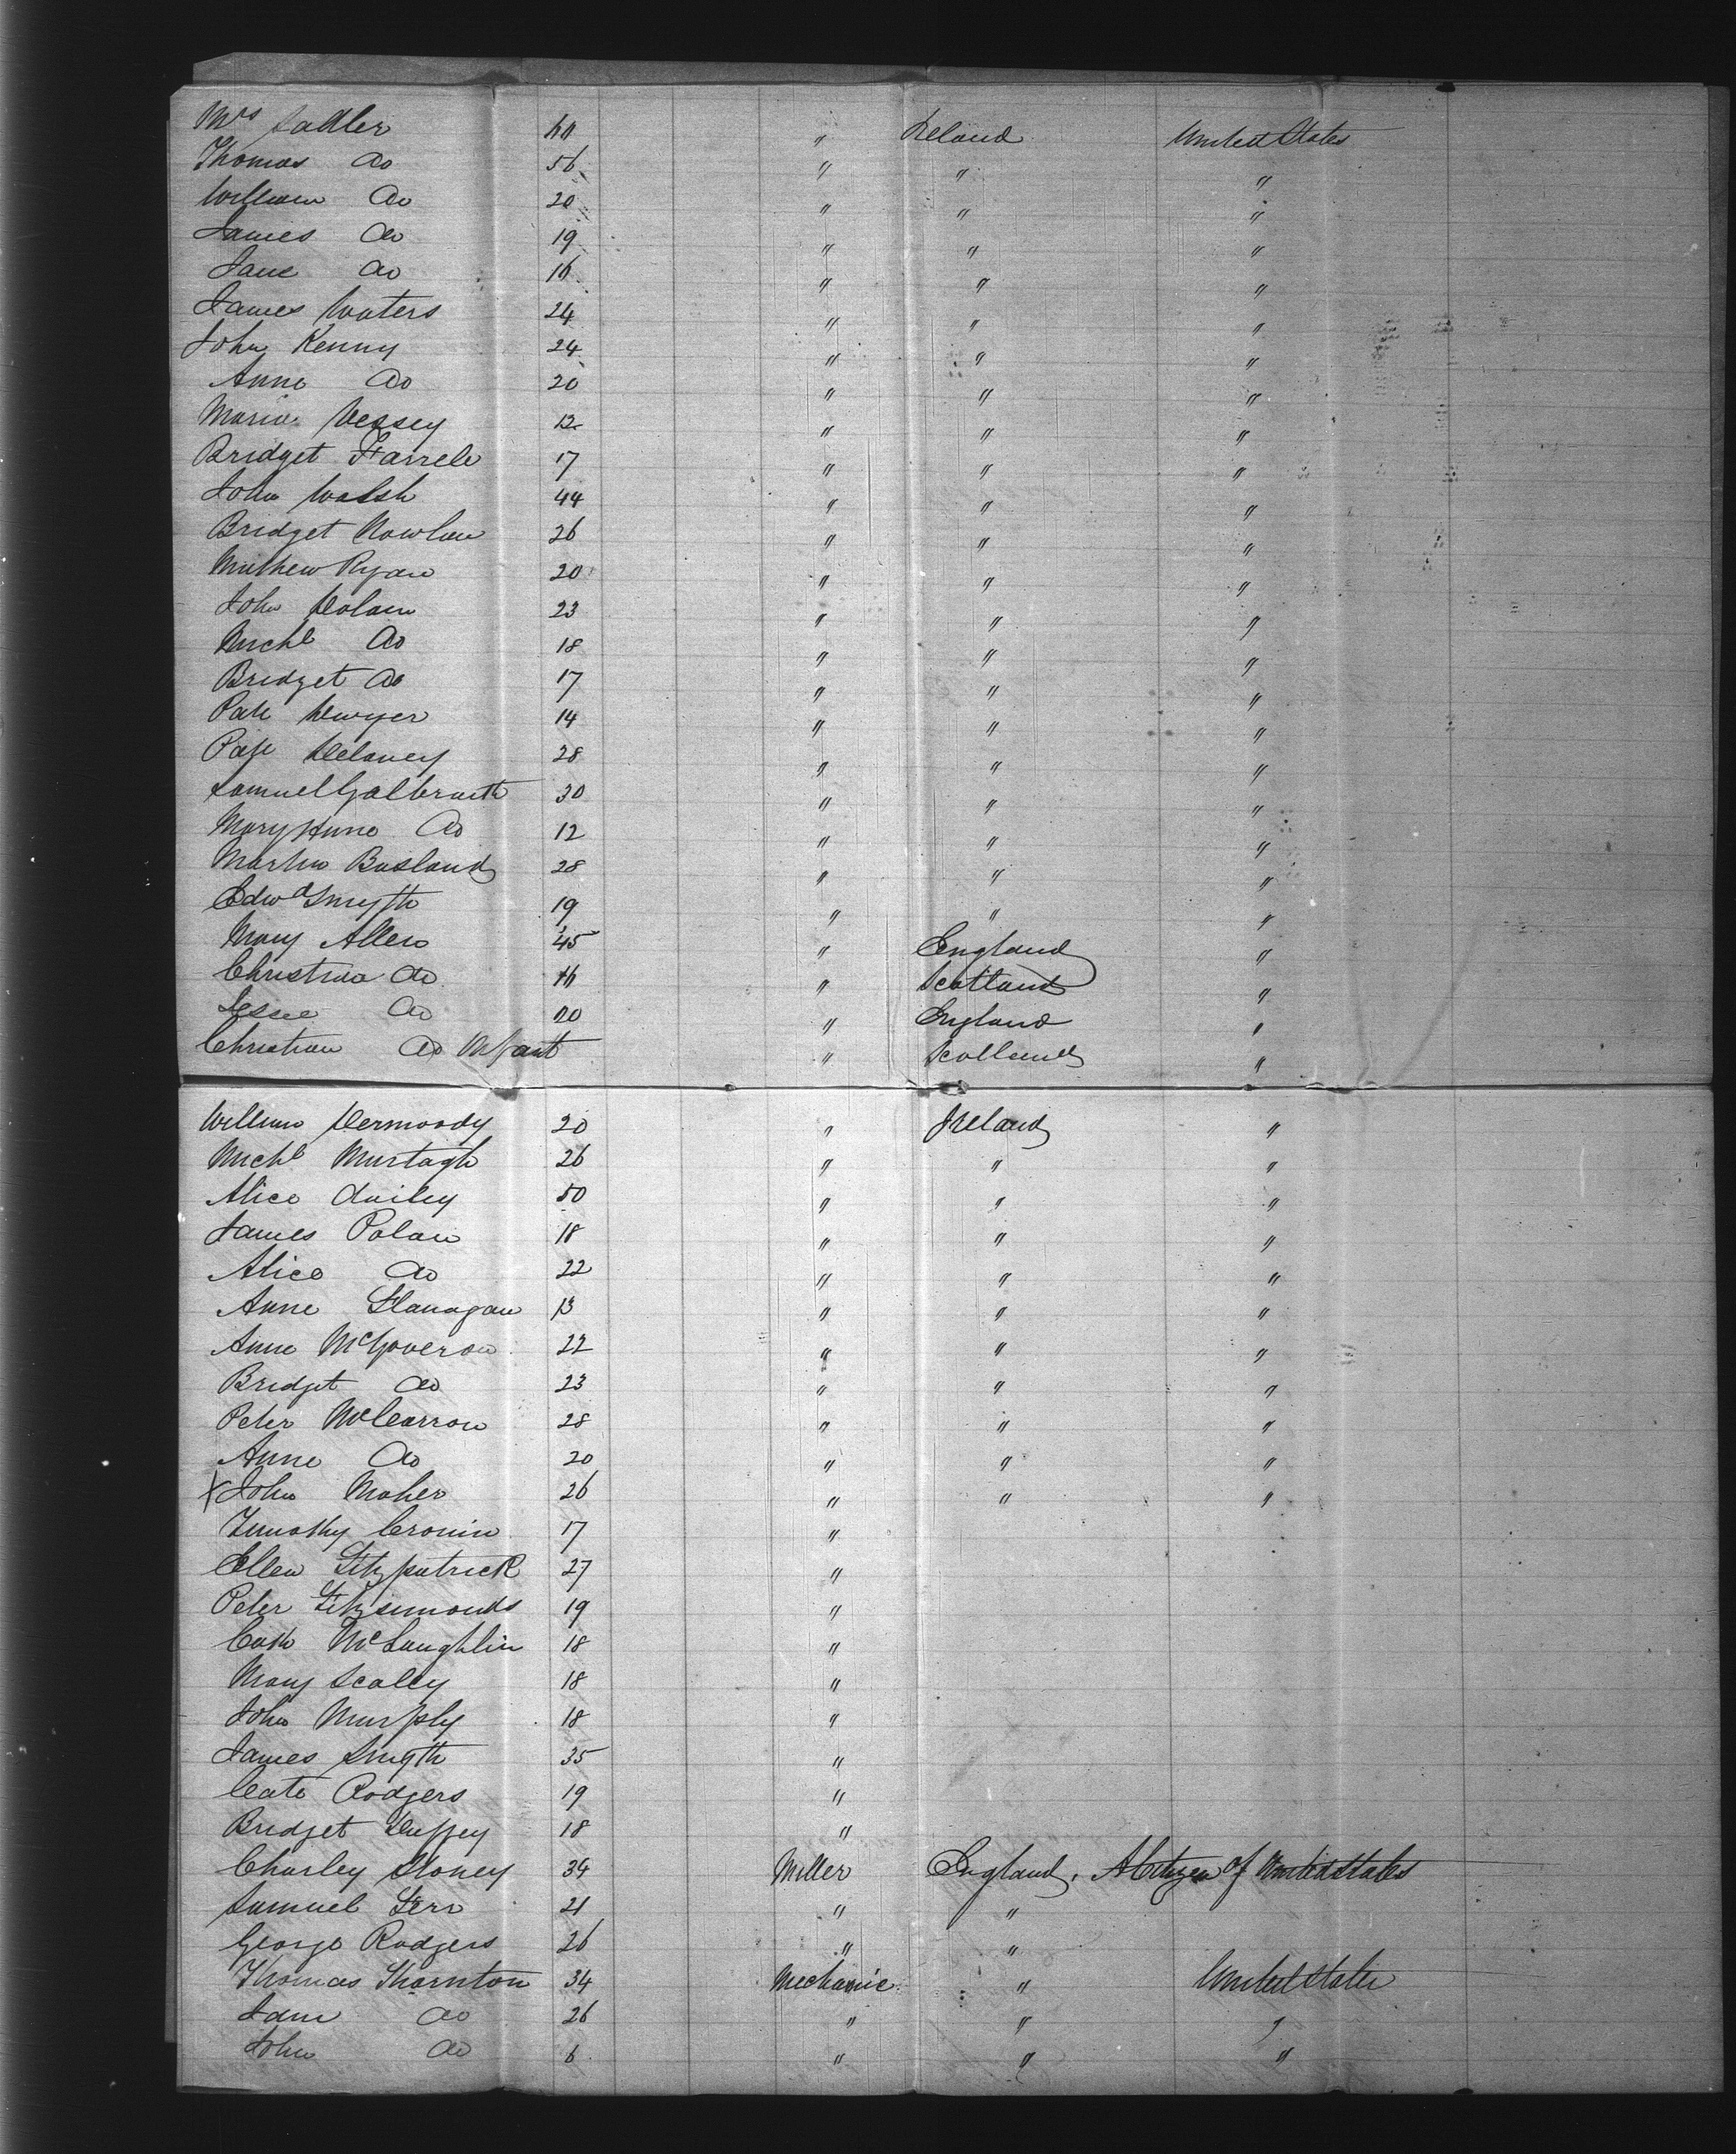 Mrs Sadler 60 " Ireland United States
Thomas do 56 " " "
William do 20 " " "
James do 19 " " "
Jane do 16 " " "
James Waters 24 " " "
John Kenny 24 " " "
Anne do 20 " " "
Maria Vessey 12 " " "
Bridget Farrell 17 " " "
John Walsh 44 " " "
Bridget Nowlan 26 " " "
Mathew Ryan 20 " " "
John Dolan 23 " " "
Michl do 18 " " "
Bridget do 17 " " "
Patk Dwyer 14 " " "
Patk Delaney 28 " " "
Samuel Galbraith 30 " " "
Mary Anne do 12 " " "
Martin Busland 28 " " "
Edwd Smyth 19 " " "
Mary Allen 45 " England "
Christina do 16 " Scotland "
Jessie do 20 " England "
Christian do Infant " Scotland "
William Dermoody 20 " Ireland "
Michl Murtagh 26 " " "
Alice 50 " " "
James Polan 18 " " "
Alice do 22 " " "
Anne Flanagan 13 " " "
Anne McGoveron 22 " " "
Bridget do 23 " " "
Peter McCarron 28 " " "
Anne do 20 " " "
X John Maher 26 " " "
Timothy Cronin 17 "
Ellen Fitzpatrick 27 "
Peter Fitzsimonds 19 "
Cath McLaughlin 18 "
Mary Scally 18 "
John Murphy 18 "
James Smyth 35 "
Cate Rodgers 19 "
Bridget Duffey 18 "
Charley Stoney 34 Miller England, A Citizen of United States
Samuel 21 " "
George Rodgers 26 " "
Thomas Thornton 34 Mechanic " United States
Jane do 26 " " "
John do 6 " " "